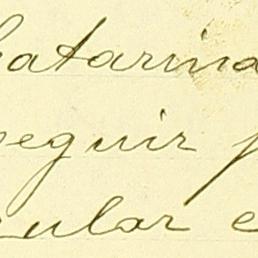 Catarina
seguir p
cular e